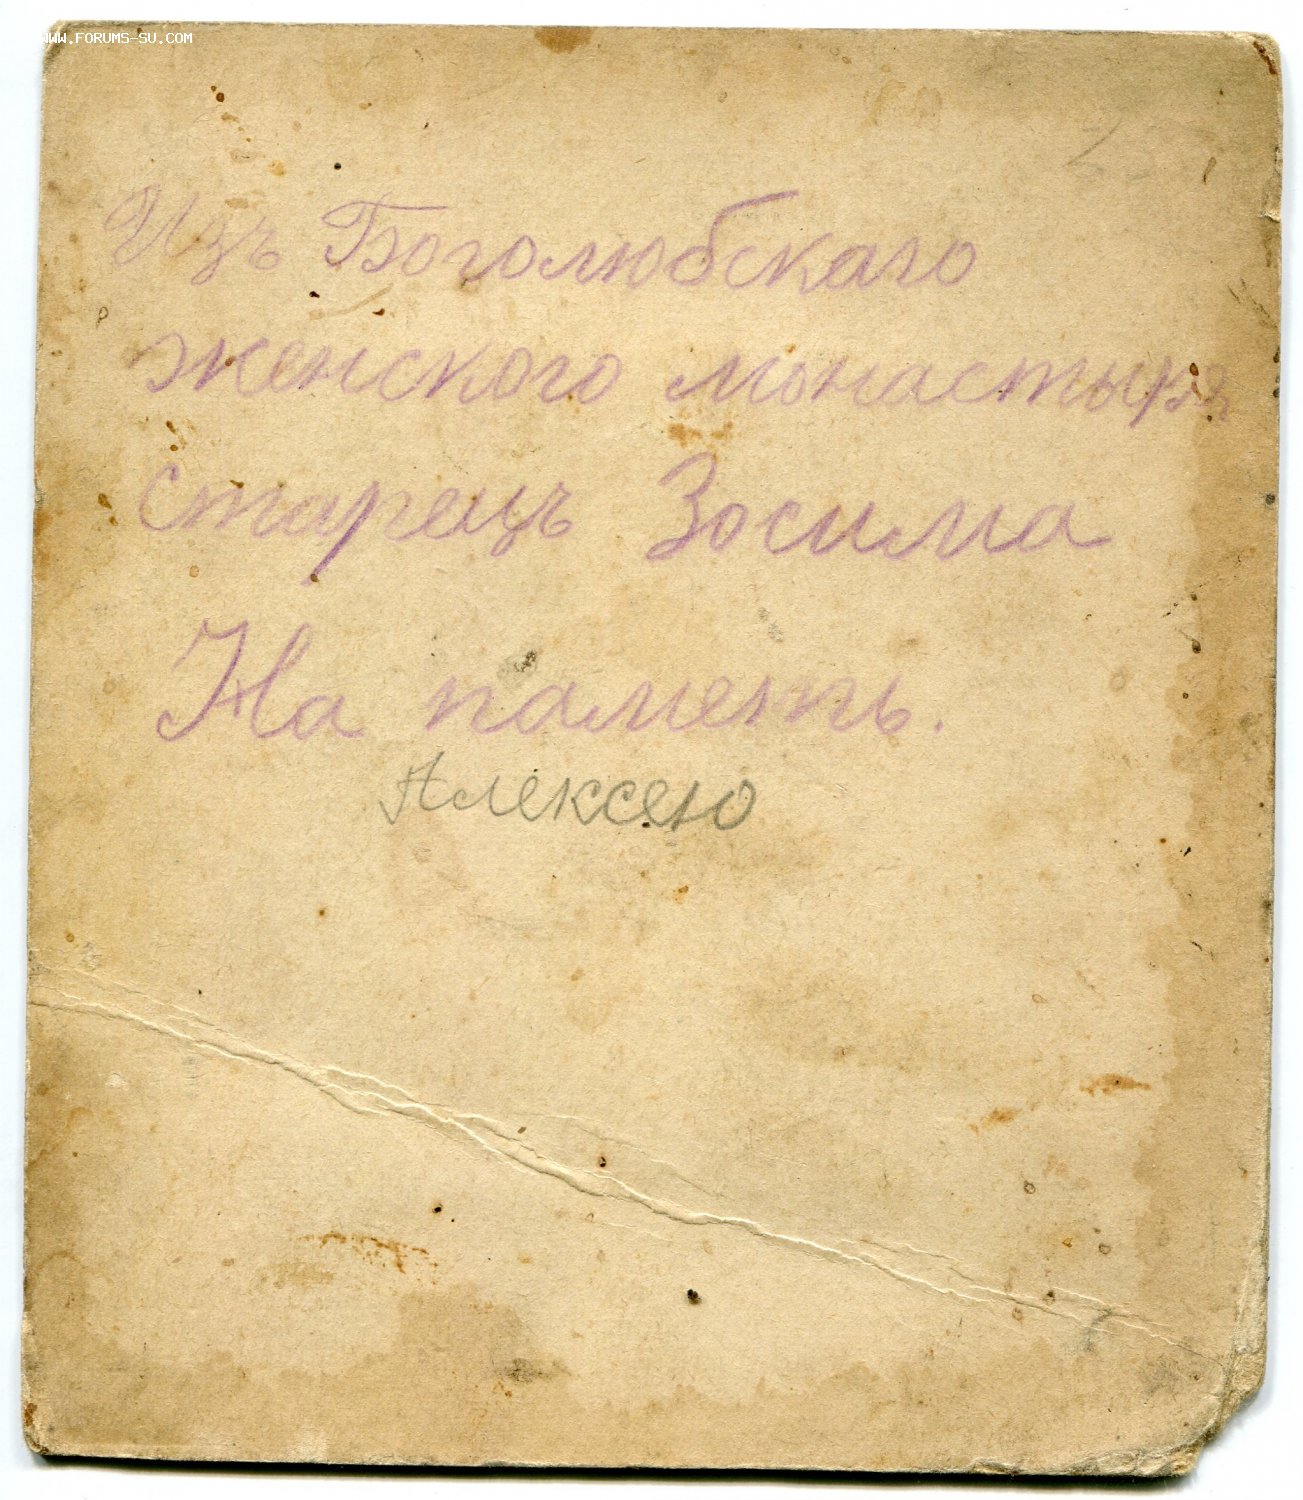 WWW.FORUMS-SU.COM
Изъ Боголюбскаго
женского монастыря
старецъ Зосима
На паметь.
Алексею